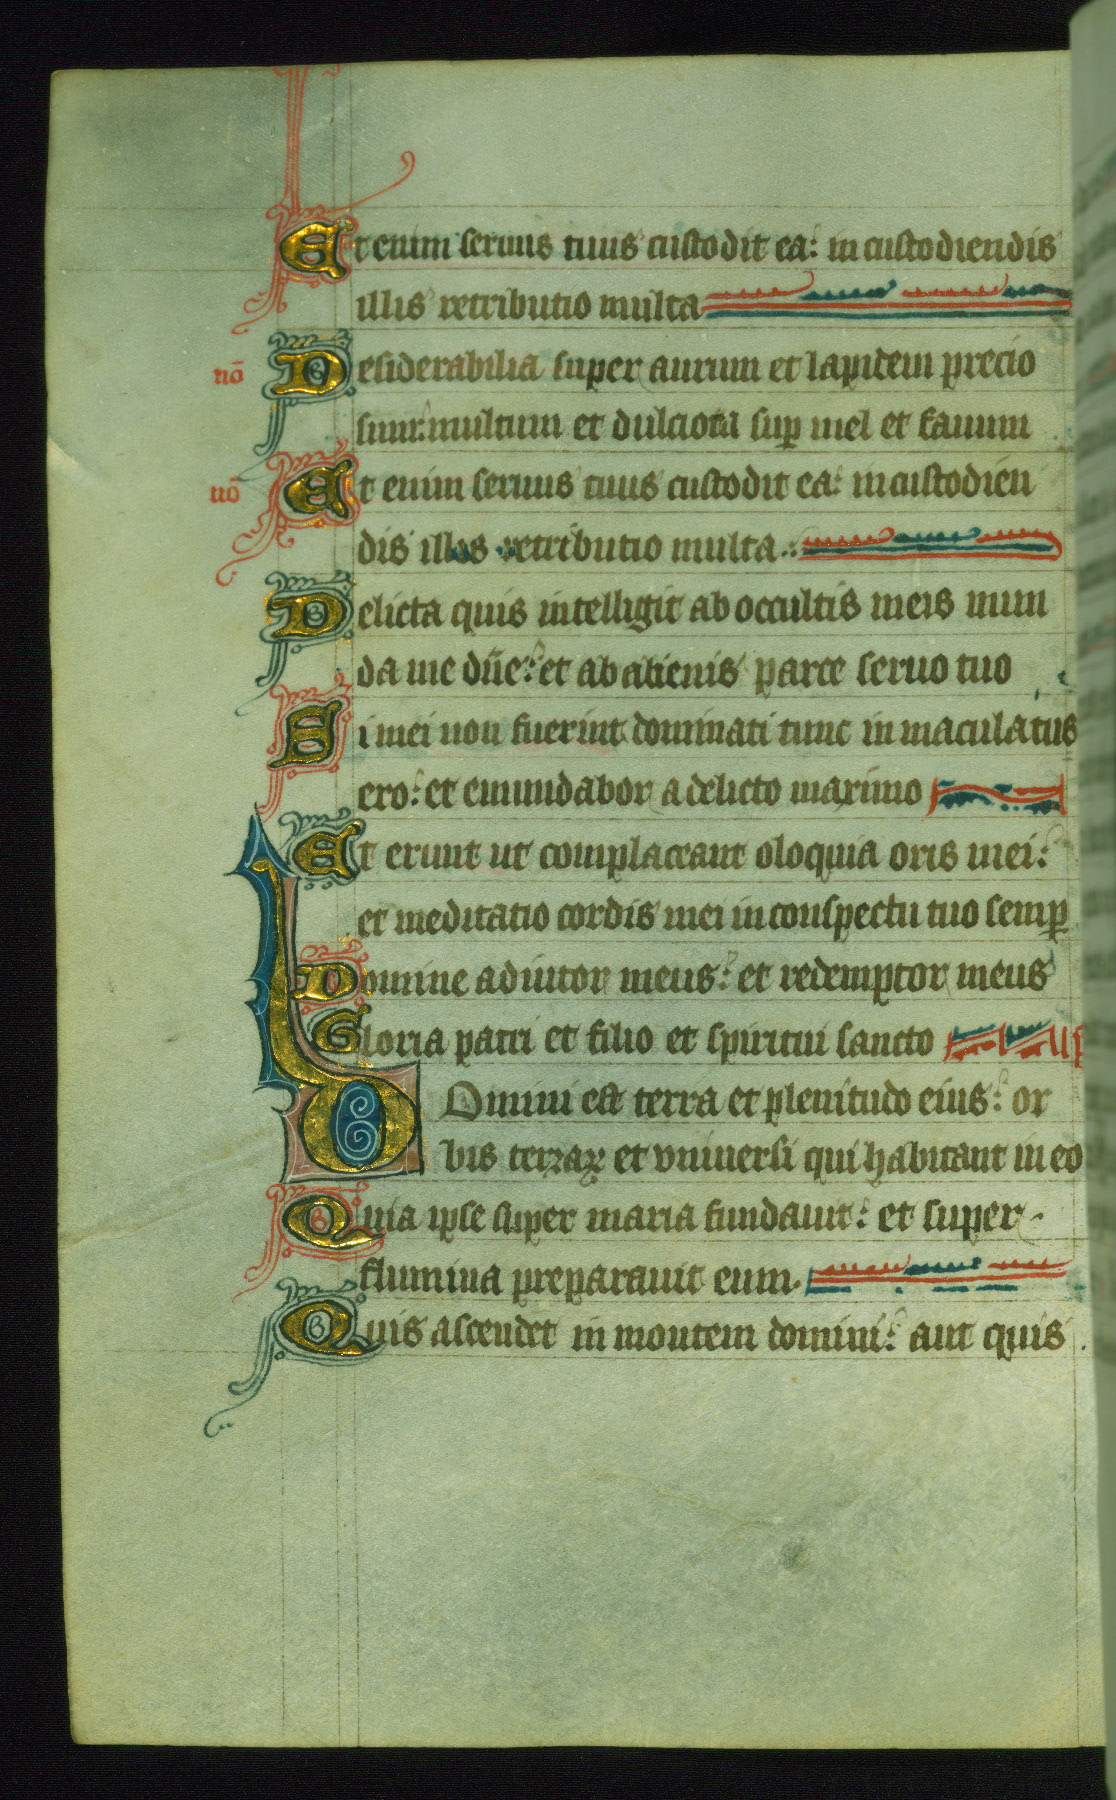 Et enim seruus tuus custodit ea: in custodiendis
illis retributio multa
nō Desiderabilia super aurum et lapidem precio
sum: multum et dulciora sup mel et fauum
nō Et enim seruus tuus custodit ea: in custodien
dis illos retributio multa
Delicta quis intelligit ab occultis meis mun
da me dñe: et ab alienis parce seruo tuo
Si mei non fuerint dominati tunc inmaculatus
ero: et emundabor a delicto maximo
Et erunt ut complaceant oloquia oris mei:
et meditatio cordis mei in conspectu tuo semp
Domine adiutor meus: et redemptor meus
Gloria patri et filio et spiritui sancto
Domini est terra et plenitudo eius: or
bis terraꝝ et vniuersi qui habitant in eo
Quia ipse super maria fundauit: et super
flumina preparauit eum
Quis ascendet in montem domini: aut quis